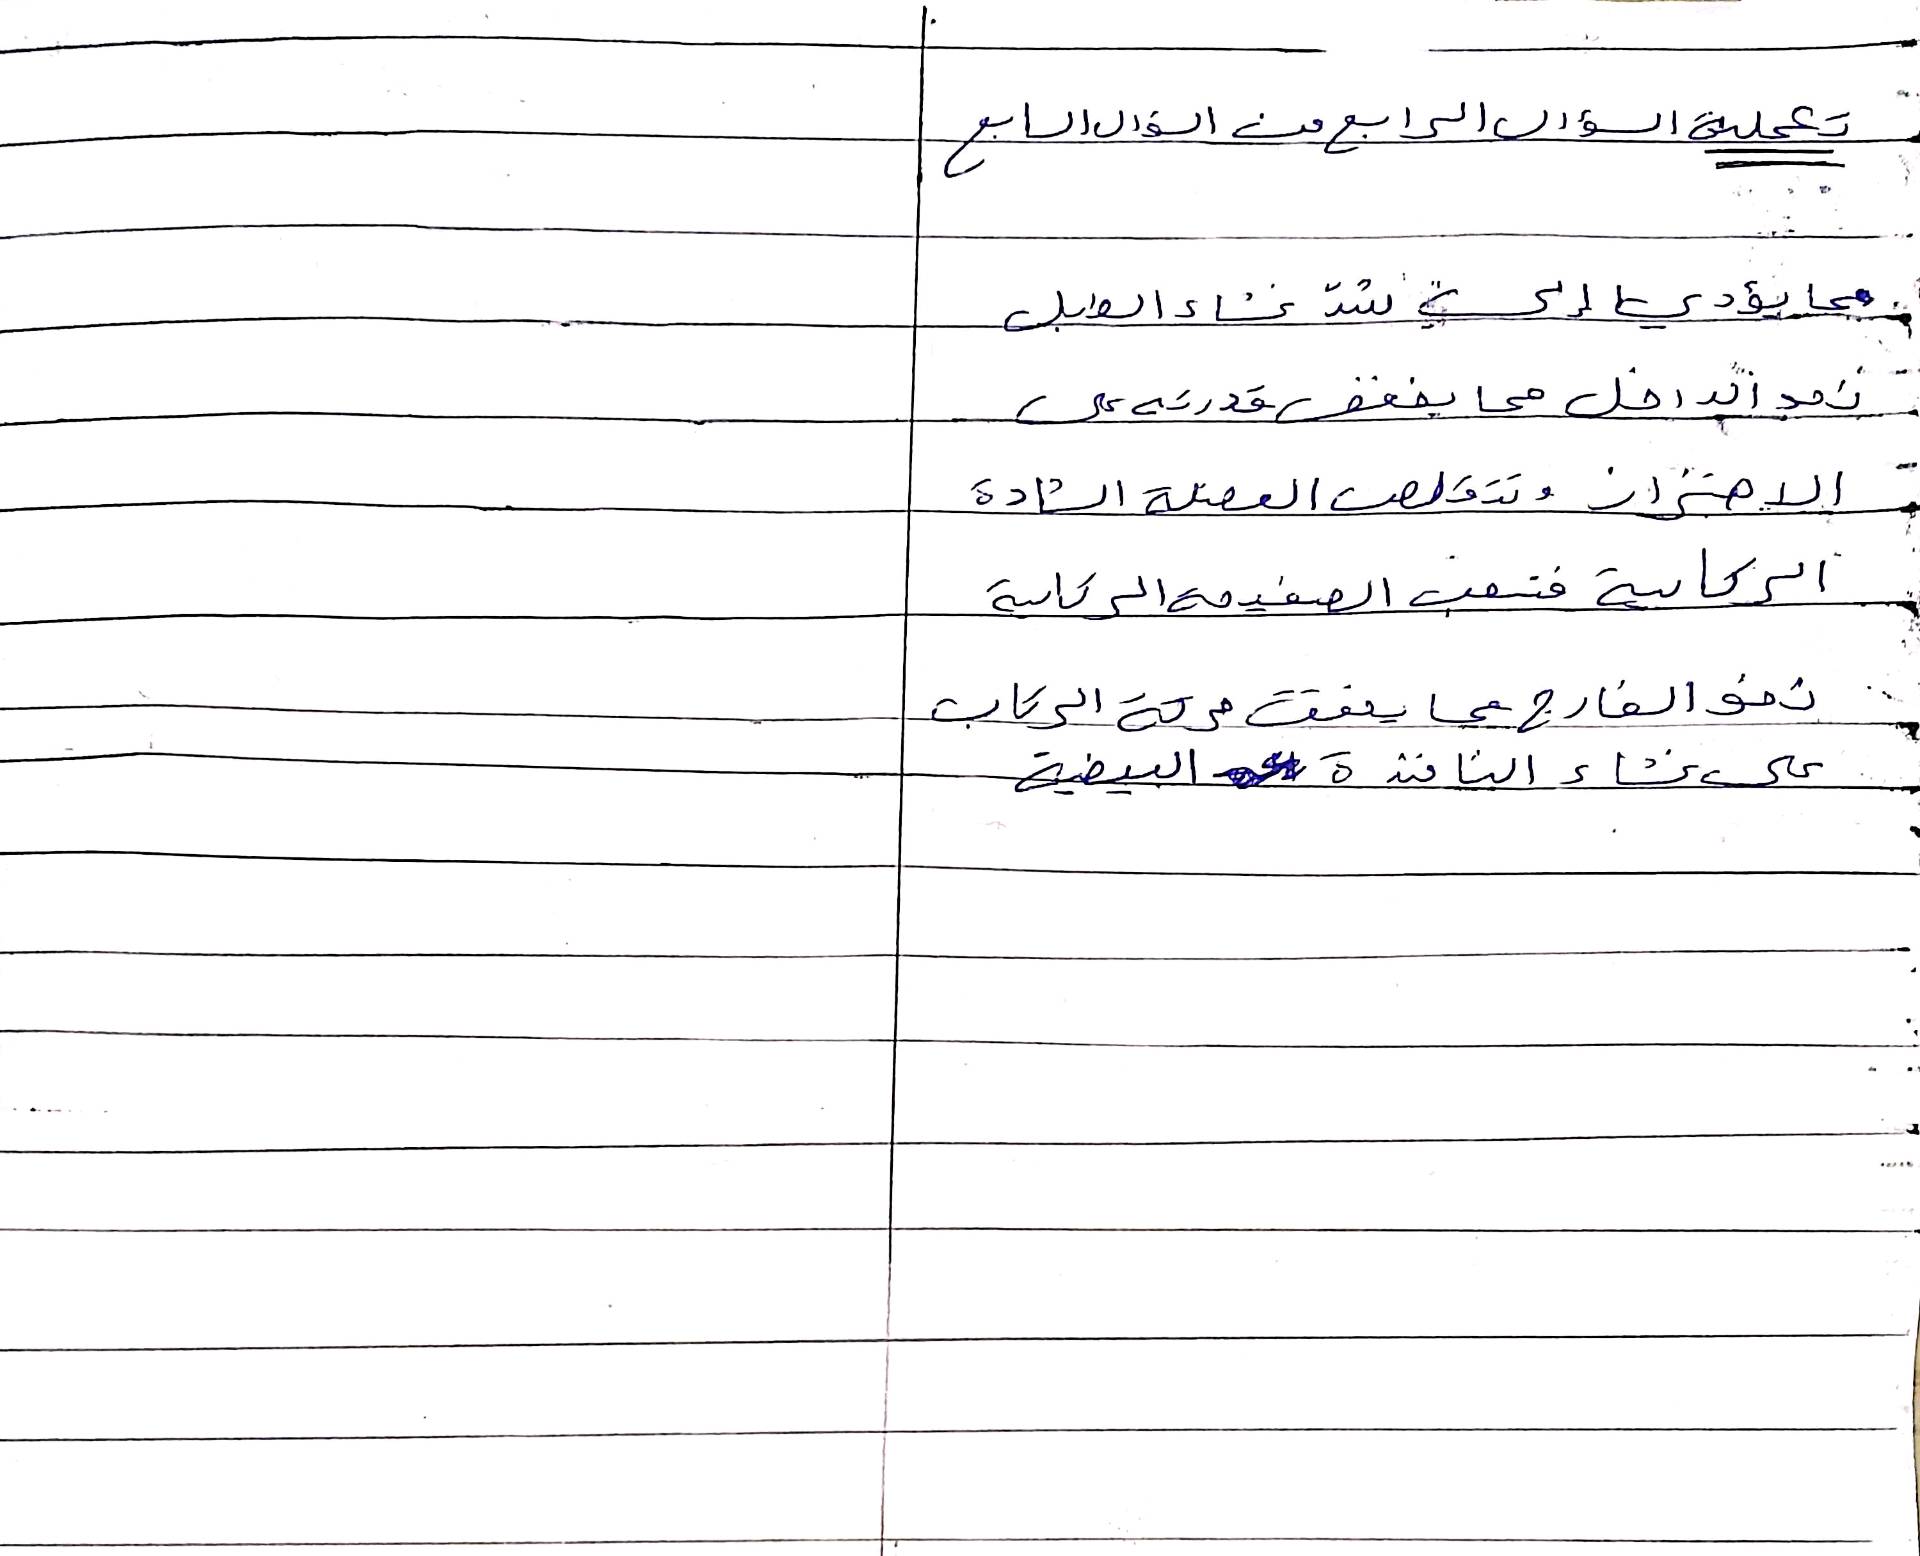 تكملة السؤال الرابع من السؤال السابع
مما يؤدي إلى شدّ غشاء الطبل
نحو الداخل مما يخفف قدرته على
الاهتزاز وتتقلص العضلة الشادة
الركابية فتسحب الصفيحة الركابية
نحو الخارج مما يخفف حركة الركاب
على غشاء النافذة البيضية